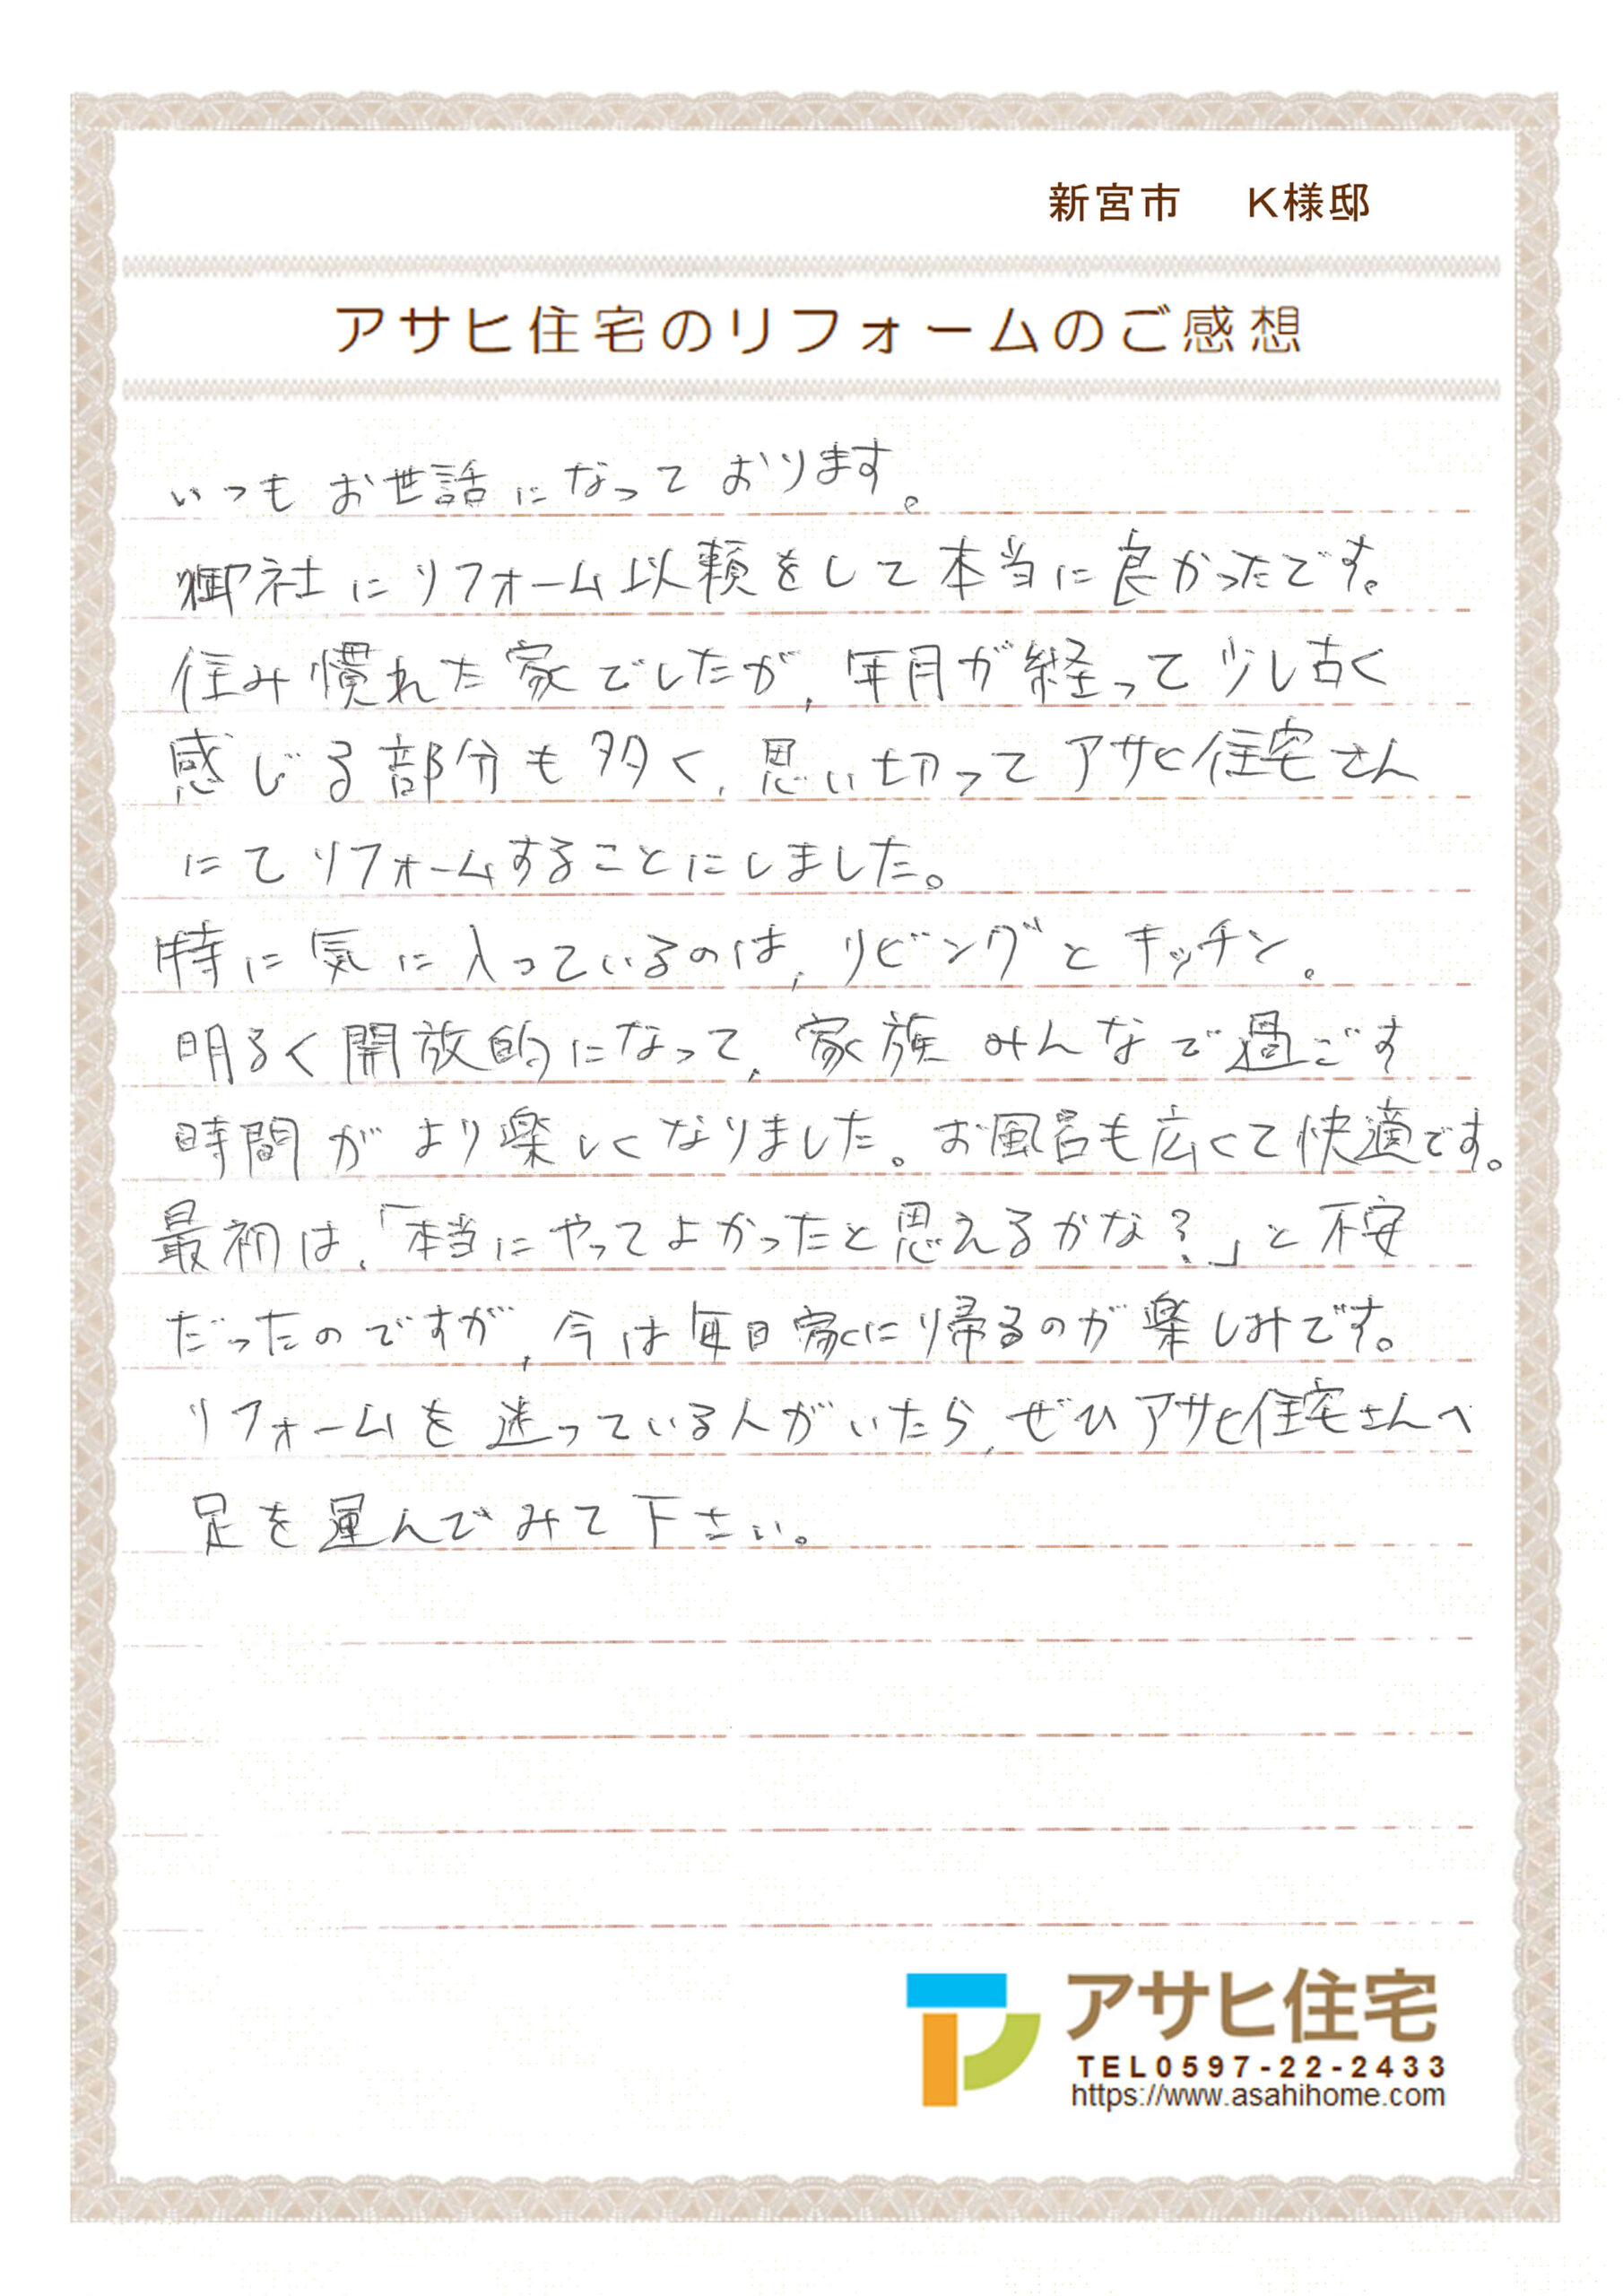 新宮市 K様邸
アサヒ住宅のリフォームのご感想
いつもお世話になっております。
御社にリフォーム以頼をして本当に良かったです。
住み慣れた家でしたが、年月が経って少し古く
感じる部分も多く、思い切ってアサヒ住宅さん
にてリフォームすることにしました。
特に気に入っているのは、リビングとキッチン。
明るく開放的になって、家族みんなで過ごす
時間がより楽しくなりました。お風呂も広くて快適です。
最初は、「本当にやってよかったと思えるかな？」と不安
だったのですが、今は毎日家に帰るのが楽しみです。
リフォームを迷っている人がいたら、ぜひアサヒ住宅さんへ
足を運んでみて下さい。
アサヒ住宅
TEL0597-22-2433
https://www.asahihome.com